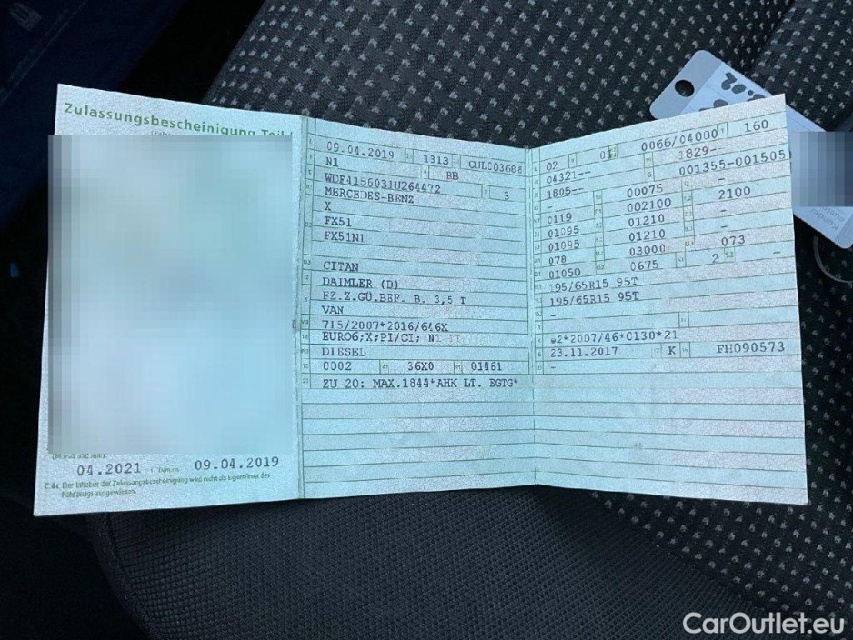 Zulassungsbescheinigung Teil I
04.2021 09.04.2019
C.4c. Der Inhaber der Zulassungsbescheinigung wird nicht als Eigentümer des
Fahrzeugs ausgewiesen.
09.04.2019 1313 CUL003688
N1 BB
WDF4156031U264472 3
MERCEDES-BENZ
X
FX51
FX51N1
CITAN
DAIMLER (D)
FZ.Z.GÜ.BEF. B. 3,5 T
VAN
715/2007*2016/646X
EURO6;X;PI/CI; N1
DIESEL
0002 36X0 01461
ZU 20: MAX.1844*AHK LT. EGTG*
02 0066/04000 160
04321-- 1829--
1805-- 001355-001505
00075
0119 002100 2100
01095 01210 -
01095 01210 -
078 03000 073
01050 0675 2 -
195/65R15 95T
195/65R15 95T
-
-
e2*2007/46*0130*21
23.11.2017 K FH090573
-
CarOutlet.eu